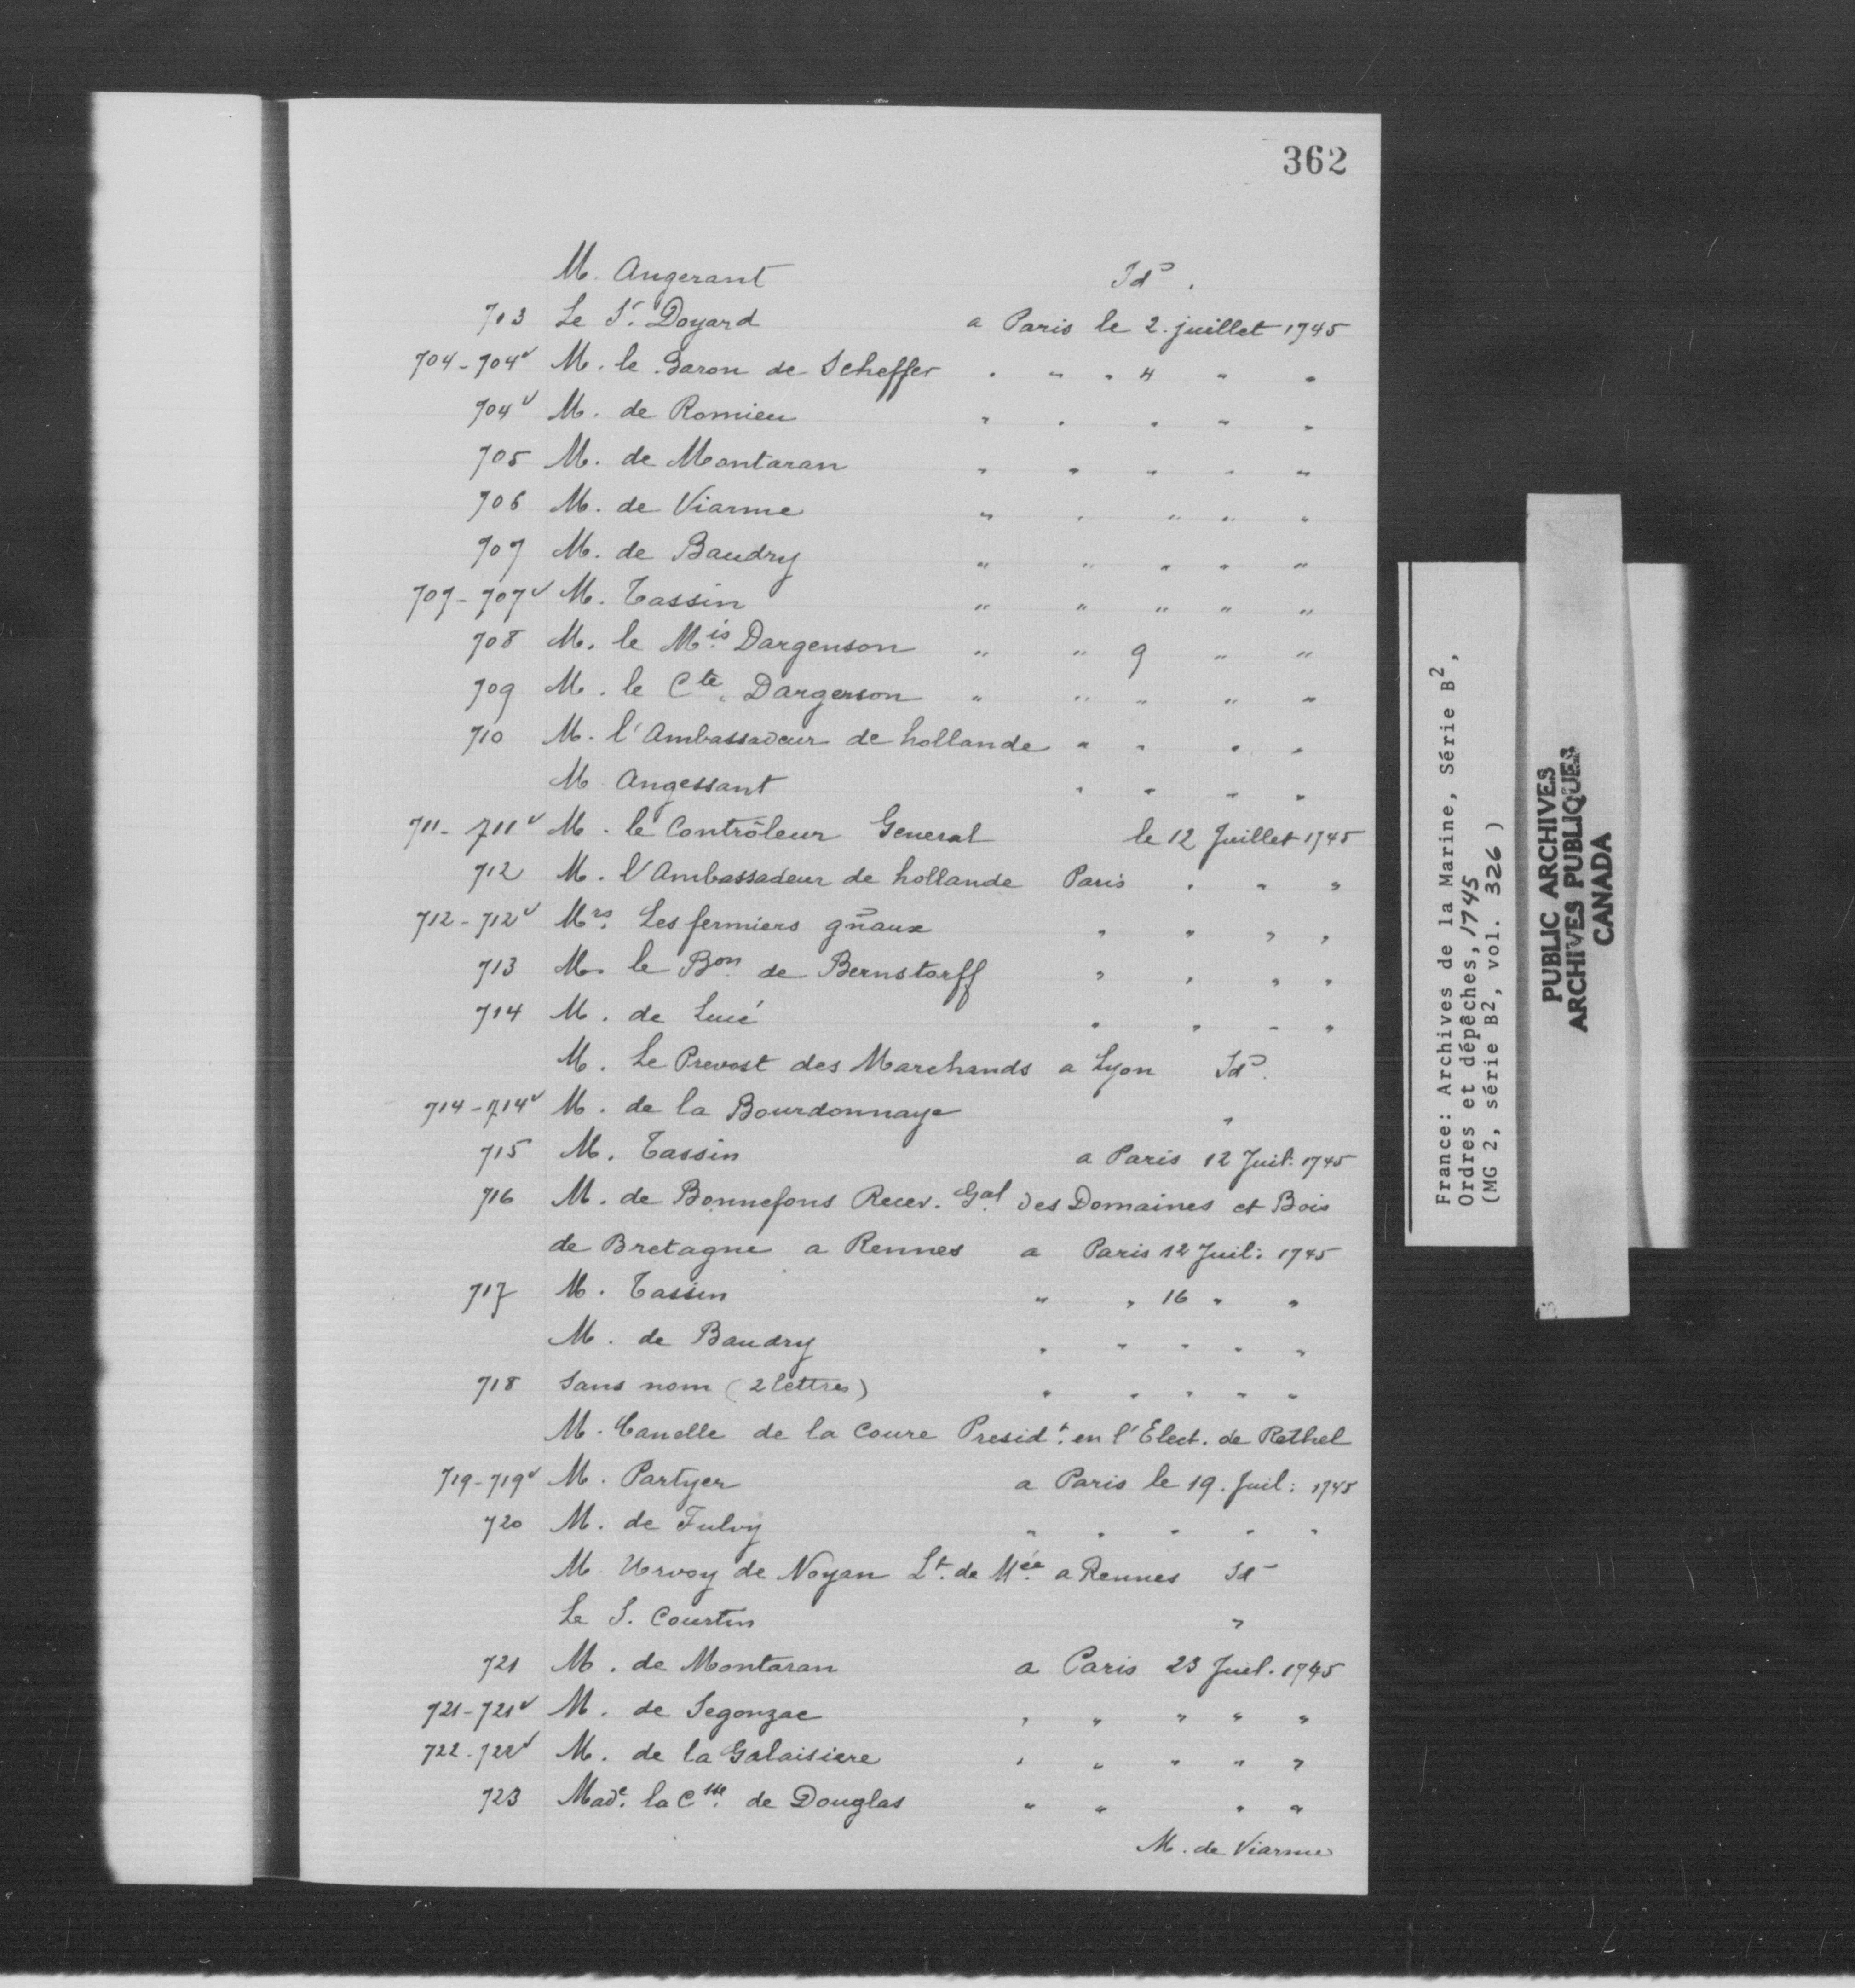 362
M. Angerant Id° .
713 Le Sr. Doyard a Paris le 2. juillet 1745
704-704v M. le Baron de Scheffer " " " 4 " "
704v M. de Romieu " " " " "
705 M. de Montaran " " " " "
706 M. de Viarme " " " " "
707 M. de Baudry " " " " "
707-707v M. Tassin " " " " "
708 M. le Mis Dargenson " " 9 " "
709 M. le Cte. Dargerson " " " " "
710 M. l'Ambassadeur de hollande " " " "
M Angessant " " " "
711-711v M. le Contrôleur General le 12 Juillet 1745
712 M. l'Ambassadeur de hollande Paris " " "
712-712v Mrs. Les fermiers gn̄aux " " " "
713 M. le Bon de Bernstorff " " " "
714 M. de Lucé " " " "
M. Le Prevost des Marchands a Lyon Id°.
714-714v M. de la Bourdonnaye "
715 M. Tassin a Paris 12 Juil: 1745
716 M. de Bonnefons Recev. Gal des Domaines et Bois
de Bretagne a Rennes a Paris 12 Juil: 1745
717 M. Tassin " " 16 " "
M. de Baudry " " " " "
718 Sans nom (2 lettres) " " " " "
M. Canelle de la Coure Presidt. en l'Elect. de Rethel
719-719v M. Partyer a Paris le 19. Juil: 1745
720 M. de Fulvy " " " " "
M. Urvoy de Noyan Lt. de Mée a Rennes Id
Le S. Courtin "
721 M. de Montaran a Paris 23 Juil. 1745
721-721v M. de Segonzac " " " " "
722-722v M. de la Galaisiere " " " " "
723 Made. la Csse. de Douglas " " " "
M. de Viarme
France: Archives de la Marine, Série B2,
Ordres et dépêches, 1745
(MG 2, série B2, vol. 326 )
PUBLIC ARCHIVES
ARCHIVES PUBLIQUES
CANADA